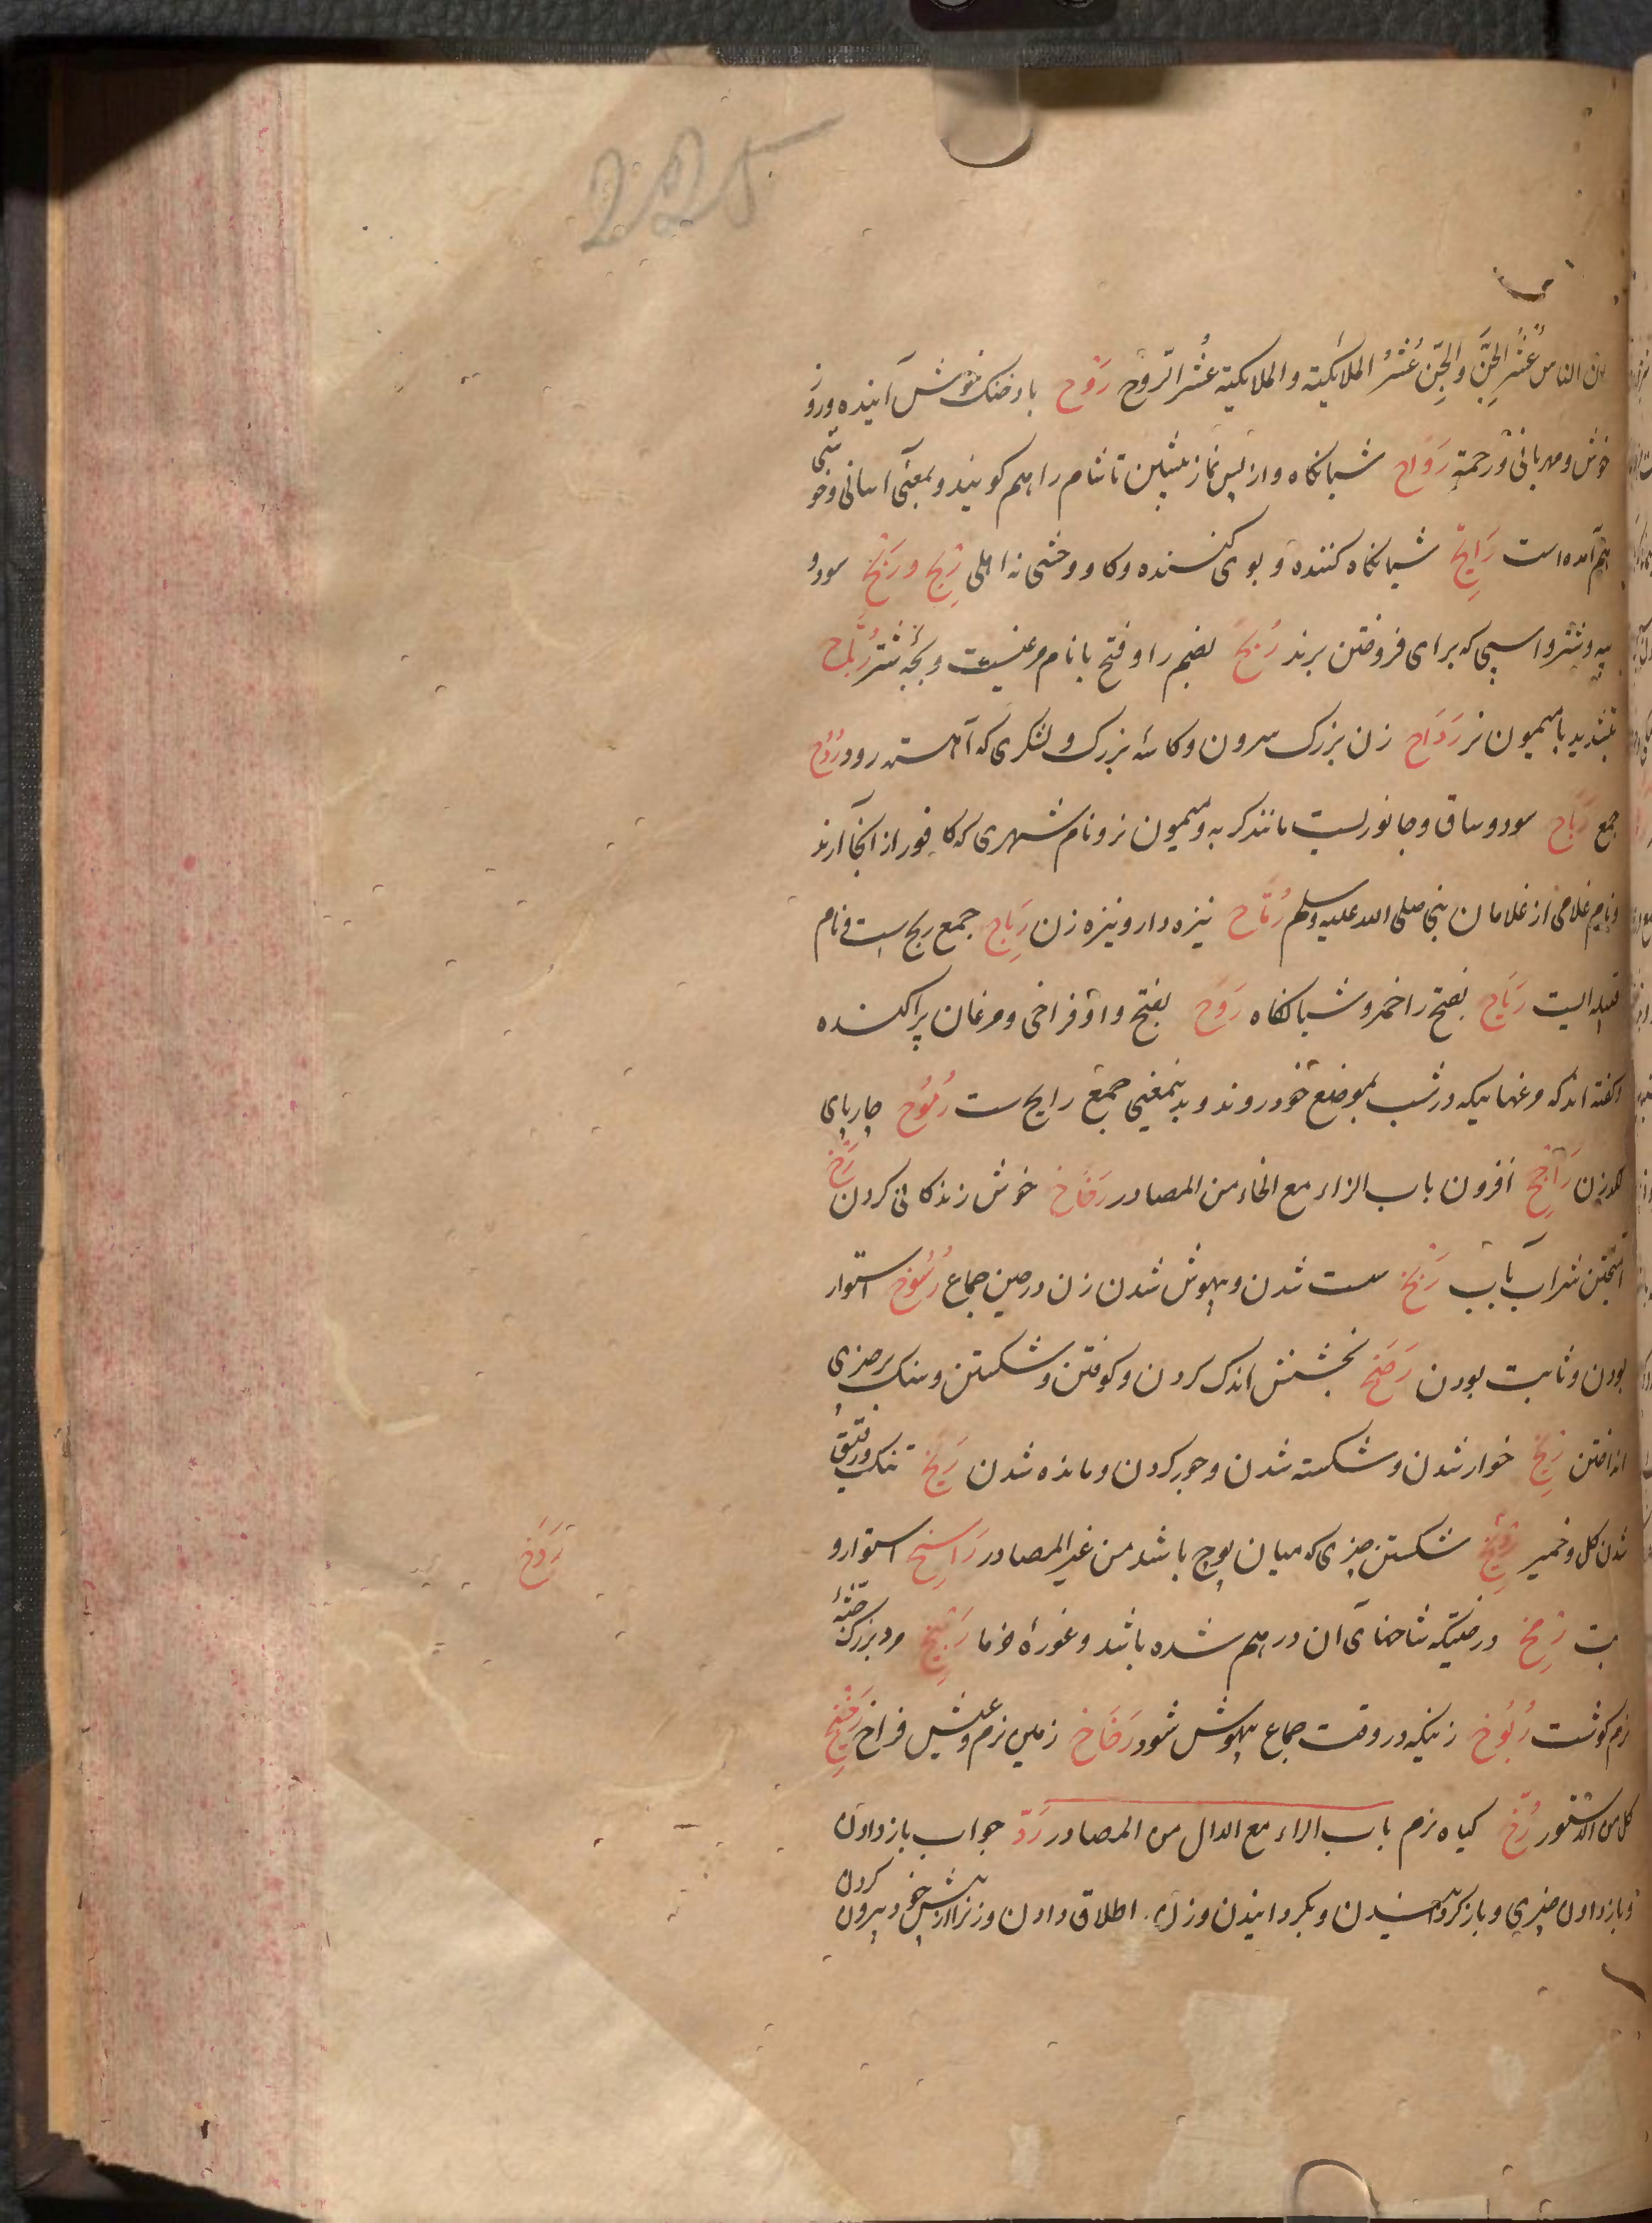 225
ان الناس عُشْرُ الجِنّ والجِنّ عُشْرُ الملائکیة والملایکیة عُشر الرّوح رَوْح باد خنک خوش آینده و روز
خوش و مهربانی و رحمة رَوَاح شبانکاه و از پس نماز پیشین تا شام را هم کویند و بمعنی آسانی و خوشی
هم آمده است رَایِح شبانکاه کننده و بوی کننده و کاو وحشی نه اهلی رِبْح و رَبَح سود و
پیه و شتر و اسپی که برای فروختن برند رُبَح بضم را و فتح با نام مرغیست و بچه شتر رُبَّاح
بتشدید با میمون نر رَدَاح زن بزرک سرون و کاسه بزرک و لشکری که آهسته رود رُدُح
جمع رَبَاح سود و ساق و جانوریست مانند کربه و میمون نر و نام شهری که کافور از انجا آرند
و نام غلامی از غلامان نبی صلی الله علیه وسلم رَمَّاح نیزه دار و نیزه زن رِیَاح جمع ریح است و نام
قبیله ایست رَیَاح بفتح را خمر و شبانکاه رَوَح بفتح واو فراخی و مرغان پراکنده
و کفته اند که مرغهائیکه در شب بموضع خود روند و بدینمعنی جمع رایح ست رَمُوح چارپای
لکدزن رَاجِح افزون باب الراء مع الخاء من المصادر رَفَاخ خوش زندکانی کردن رَخّ
آمیختن شراب بآب رَبْخ سست شدن و بیهوش شدن زن در حین جماع رُسُوخ استوار
بودن و ثابت بودن رَضْخ بخشش اندک کردن و کوفتن و شکستن و سنک بر چیزی
انداختن رَیْخ خوار شدن و شکسته شدن و جور کردن و مانده شدن رَیَخ تنک و رقیق
شدن کل و خمیر شکستن چیزی که میان پوچ باشد من غیر المصادر رَاسِخ استوار و
رَدَخ
بت رِمَخ درختیکه شاخهای آن در هم شده باشد و غورهٔ خرما رَبِیخ مرد بزرک جثهٔ
نرم کوشت رَبُوخ زنیکه در وقت جماع بیهوش شود رَخَاخ زمین نرم و عیش فراخ
کیاه نرم باب الراء مع الدال من المصادر رَدّ جواب باز دادن
و باز دادن چیزی و بکردانیدن و زن را اطلاق دادن و زن را از پیش خود بیرون کردن